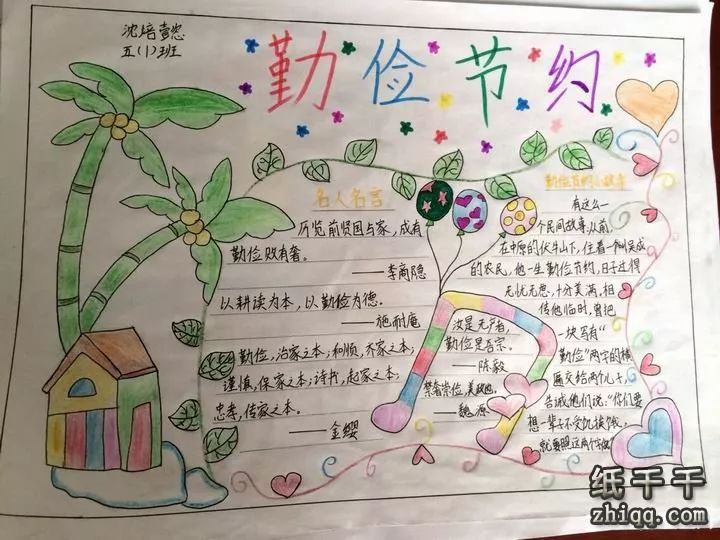 沈焙壹
五(1)班
勤俭节约
名人名言
历览前贤国与家,成有
勤俭败有奢。
——李商隐
以耕读为本,以勤俭为德。
——施耐庵
勤俭,治家之本;和顺,齐家之本;
谨慎,保家之本;诗书,起家之本;
忠孝,传家之本。
——金缨
汝是无产者,
勤俭是吾宗。
——陈毅
禁奢崇俭,美政也。
——魏源
勤俭节约小故事
有这么一
个民间故事,从前,
在中原的伏牛山下,住着一个叫吴成
的农民,他一生勤俭节约,日子过得
无忧无虑,十分美满,相
传他临时,曾把
一块写有“
勤俭”两字的横
匾交给两个儿子,
告诫他们说:“你们要
想一辈子不受饥挨饿,
就要照这两个字做
纸干干
zhiqq.com